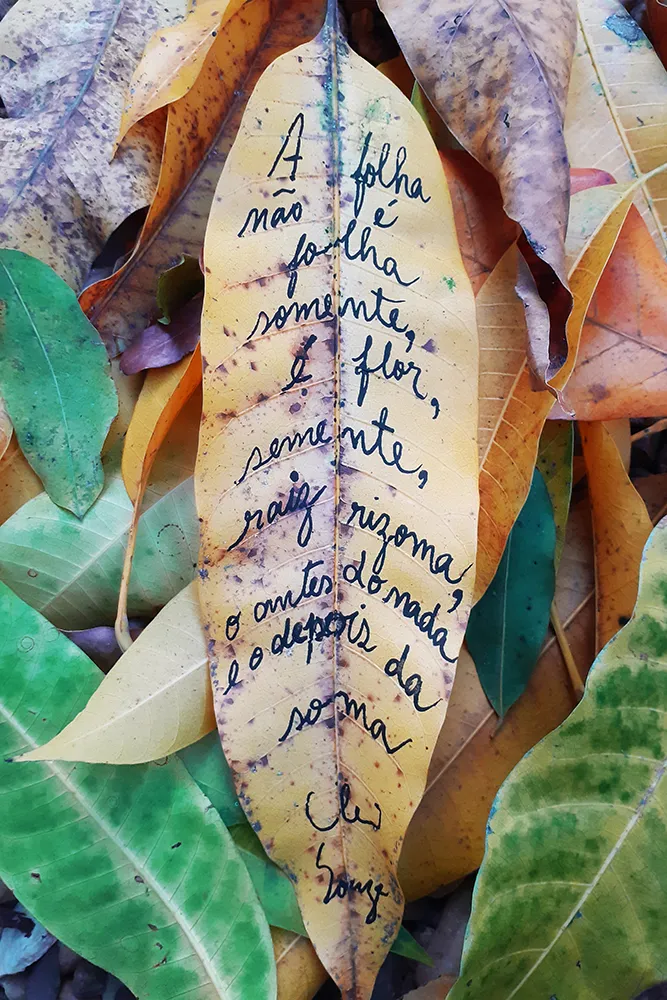 A folha
não é
folha
somente,
é flor,
semente,
raiz rizoma,
o antes do nada
e o depois da
soma